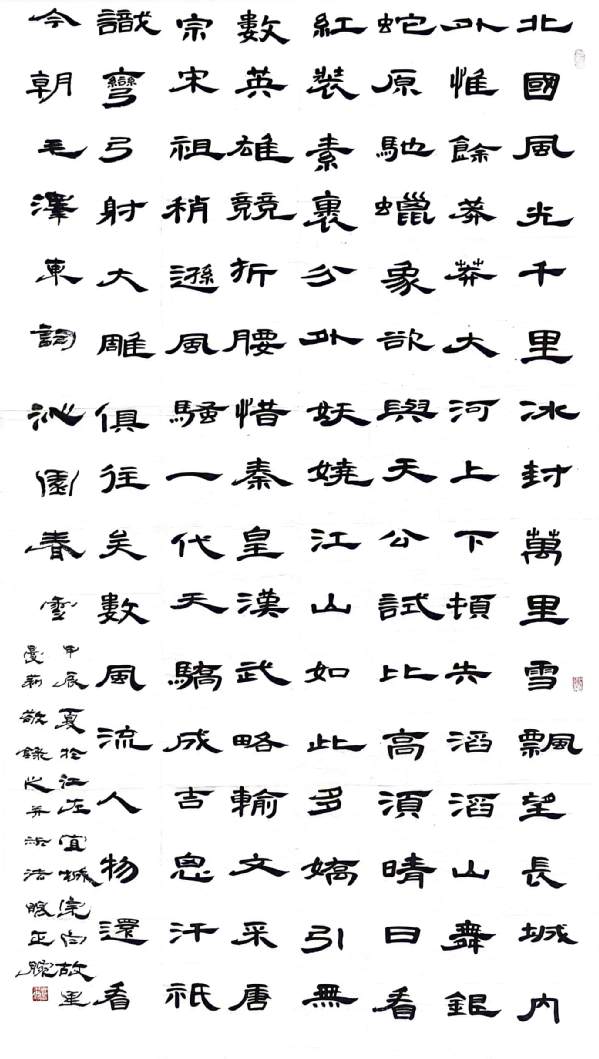 北國風光千里冰封萬里雪飄望長城內
外惟餘莽莽大河上下頓失滔滔山舞銀
蛇原馳蠟象欲與天公試比高須晴日看
紅裝素裹分外妖嬈江山如此多嬌引無
數英雄競折腰惜秦皇漢武略輸文采唐
宗宋祖稍遜風騷一代天驕成吉思汗祇
識彎弓射大雕俱往矣數風流人物還看
今朝毛澤東詞沁園春雪
甲辰夏於江左宜城宗白故里
曼莉敬錄之并